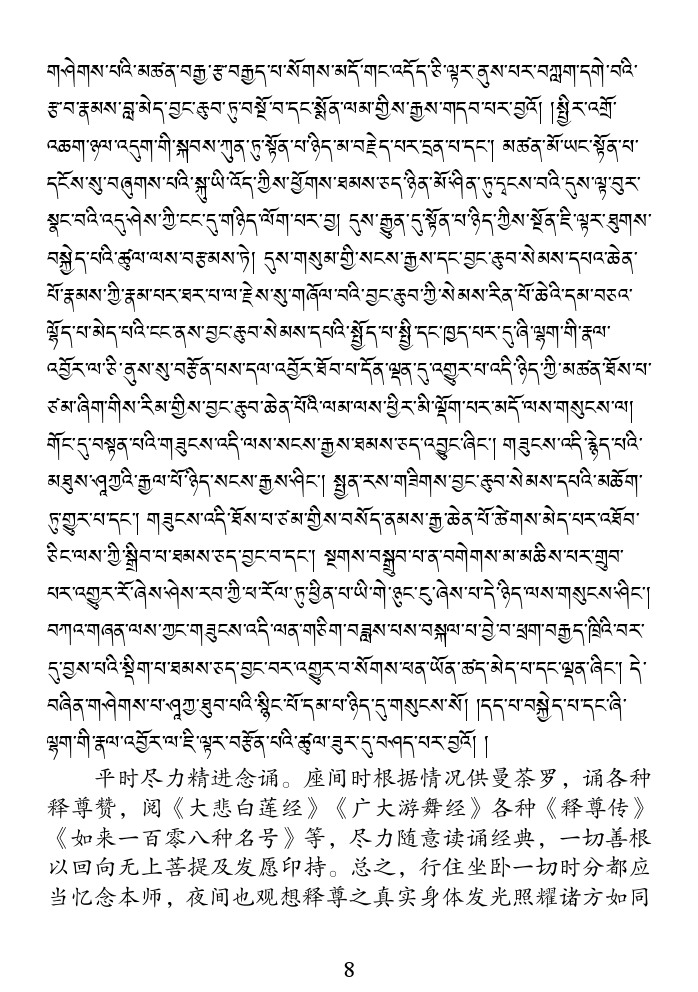 གཤེགས་པའི་མཚན་བརྒྱ་རྩ་བརྒྱད་པ་སོགས་མདོ་གང་འདོད་ཅི་ལྟར་ནུས་པར་བཀླག་དགེ་བའི་
རྩ་བ་རྣམས་བླ་མེད་བྱང་ཆུབ་ཏུ་བསྔོ་བ་དང་སྨོན་ལམ་གྱིས་རྒྱས་གདབ་པར་བྱའོ། །སྤྱིར་འགྲོ་
འཆག་ཉལ་འདུག་གི་སྐབས་ཀུན་ཏུ་སྟོན་པ་ཉིད་མ་བརྗེད་པར་དྲན་པ་དང་། མཚན་མོ་ཡང་སྟོན་པ་
དངོས་སུ་བཞུགས་པའི་སྐུ་ཡི་འོད་ཀྱིས་ཕྱོགས་ཐམས་ཅད་ཉིན་མོ་ཤིན་ཏུ་དྭངས་བའི་དུས་ལྟ་བུར་
སྣང་བའི་འདུ་ཤེས་ཀྱི་ངང་དུ་གཉིད་ལོག་པར་བྱ། དུས་རྒྱུན་དུ་སྟོན་པ་ཉིད་ཀྱིས་སྔོན་ཇི་ལྟར་ཐུགས་
བསྐྱེད་པའི་ཚུལ་ལས་བརྩམས་ཏེ། དུས་གསུམ་གྱི་སངས་རྒྱས་དང་བྱང་ཆུབ་སེམས་དཔའ་ཆེན་
པོ་རྣམས་ཀྱི་རྣམ་པར་ཐར་པ་ལ་རྗེས་སུ་གཞོལ་བའི་བྱང་ཆུབ་ཀྱི་སེམས་རིན་པོ་ཆེའི་དམ་བཅའ་
ལྷོད་པ་མེད་པའི་ངང་ནས་བྱང་ཆུབ་སེམས་དཔའི་སྤྱོད་པ་སྤྱི་དང་ཁྱད་པར་དུ་ཞི་ལྷག་གི་རྣལ་
འབྱོར་ལ་ཅི་ནུས་སུ་བརྩོན་པས་དལ་འབྱོར་ཐོབ་པ་དོན་ལྡན་དུ་འགྱུར་པ་འདི་ཉིད་ཀྱི་མཚན་ཐོས་པ་
ཙམ་ཞིག་གིས་རིམ་གྱིས་བྱང་ཆུབ་ཆེན་པོའི་ལམ་ལས་ཕྱིར་མི་ལྡོག་པར་མདོ་ལས་གསུངས་ལ།
གོང་དུ་བསྟན་པའི་གཟུངས་འདི་ལས་སངས་རྒྱས་ཐམས་ཅད་འབྱུང་ཞིང་། གཟུངས་འདི་རྙེད་པའི་
མཐུས་ཤཱཀྱའི་རྒྱལ་པོ་ཉིད་སངས་རྒྱས་ཤིང་། སྤྱན་རས་གཟིགས་བྱང་ཆུབ་སེམས་དཔའི་མཆོག་
ཏུ་གྱུར་པ་དང་། གཟུངས་འདི་ཐོས་པ་ཙམ་གྱིས་བསོད་ནམས་རྒྱ་ཆེན་པོ་ཚེགས་མེད་པར་འཐོབ་
ཅིང་ལས་ཀྱི་སྒྲིབ་པ་ཐམས་ཅད་བྱང་བ་དང་། སྔགས་བསྒྲུབ་པ་ན་བགེགས་མ་མཆིས་པར་གྲུབ་
པར་འགྱུར་རོ་ཞེས་ཤེས་རབ་ཀྱི་པ་རོལ་ཏུ་ཕྱིན་པ་ཡི་གེ་ཉུང་ངུ་ཞེས་པ་དེ་ཉིད་ལས་གསུངས་ཤིང་།
བཀའ་གཞན་ལས་ཀྱང་གཟུངས་འདི་ལན་གཅིག་བཟླས་པས་བསྐལ་པ་བྱེ་བ་ཕྲག་བརྒྱད་ཁྲིའི་བར་
དུ་བྱས་པའི་སྡིག་པ་ཐམས་ཅད་བྱང་བར་འགྱུར་བ་སོགས་ཕན་ཡོན་ཚད་མེད་པ་དང་ལྡན་ཞིང་། དེ་
བཞིན་གཤེགས་པ་ཤཱཀྱ་ཐུབ་པའི་སྙིང་པོ་དམ་པ་ཉིད་དུ་གསུངས་སོ། །དད་པ་བསྐྱེད་པ་དང་ཞི་
ལྷག་གི་རྣལ་འབྱོར་ལ་ཇི་ལྟར་བརྩོན་པའི་ཚུལ་ཟུར་དུ་བཤད་པར་བྱའོ། །
平时尽力精进念诵。座间时根据情况供曼荼罗，诵各种
释尊赞，阅《大悲白莲经》《广大游舞经》各种《释尊传》
《如来一百零八种名号》等，尽力随意读诵经典，一切善根
以回向无上菩提及发愿印持。总之，行住坐卧一切时分都应
当忆念本师，夜间也观想释尊之真实身体发光照耀诸方如同
8